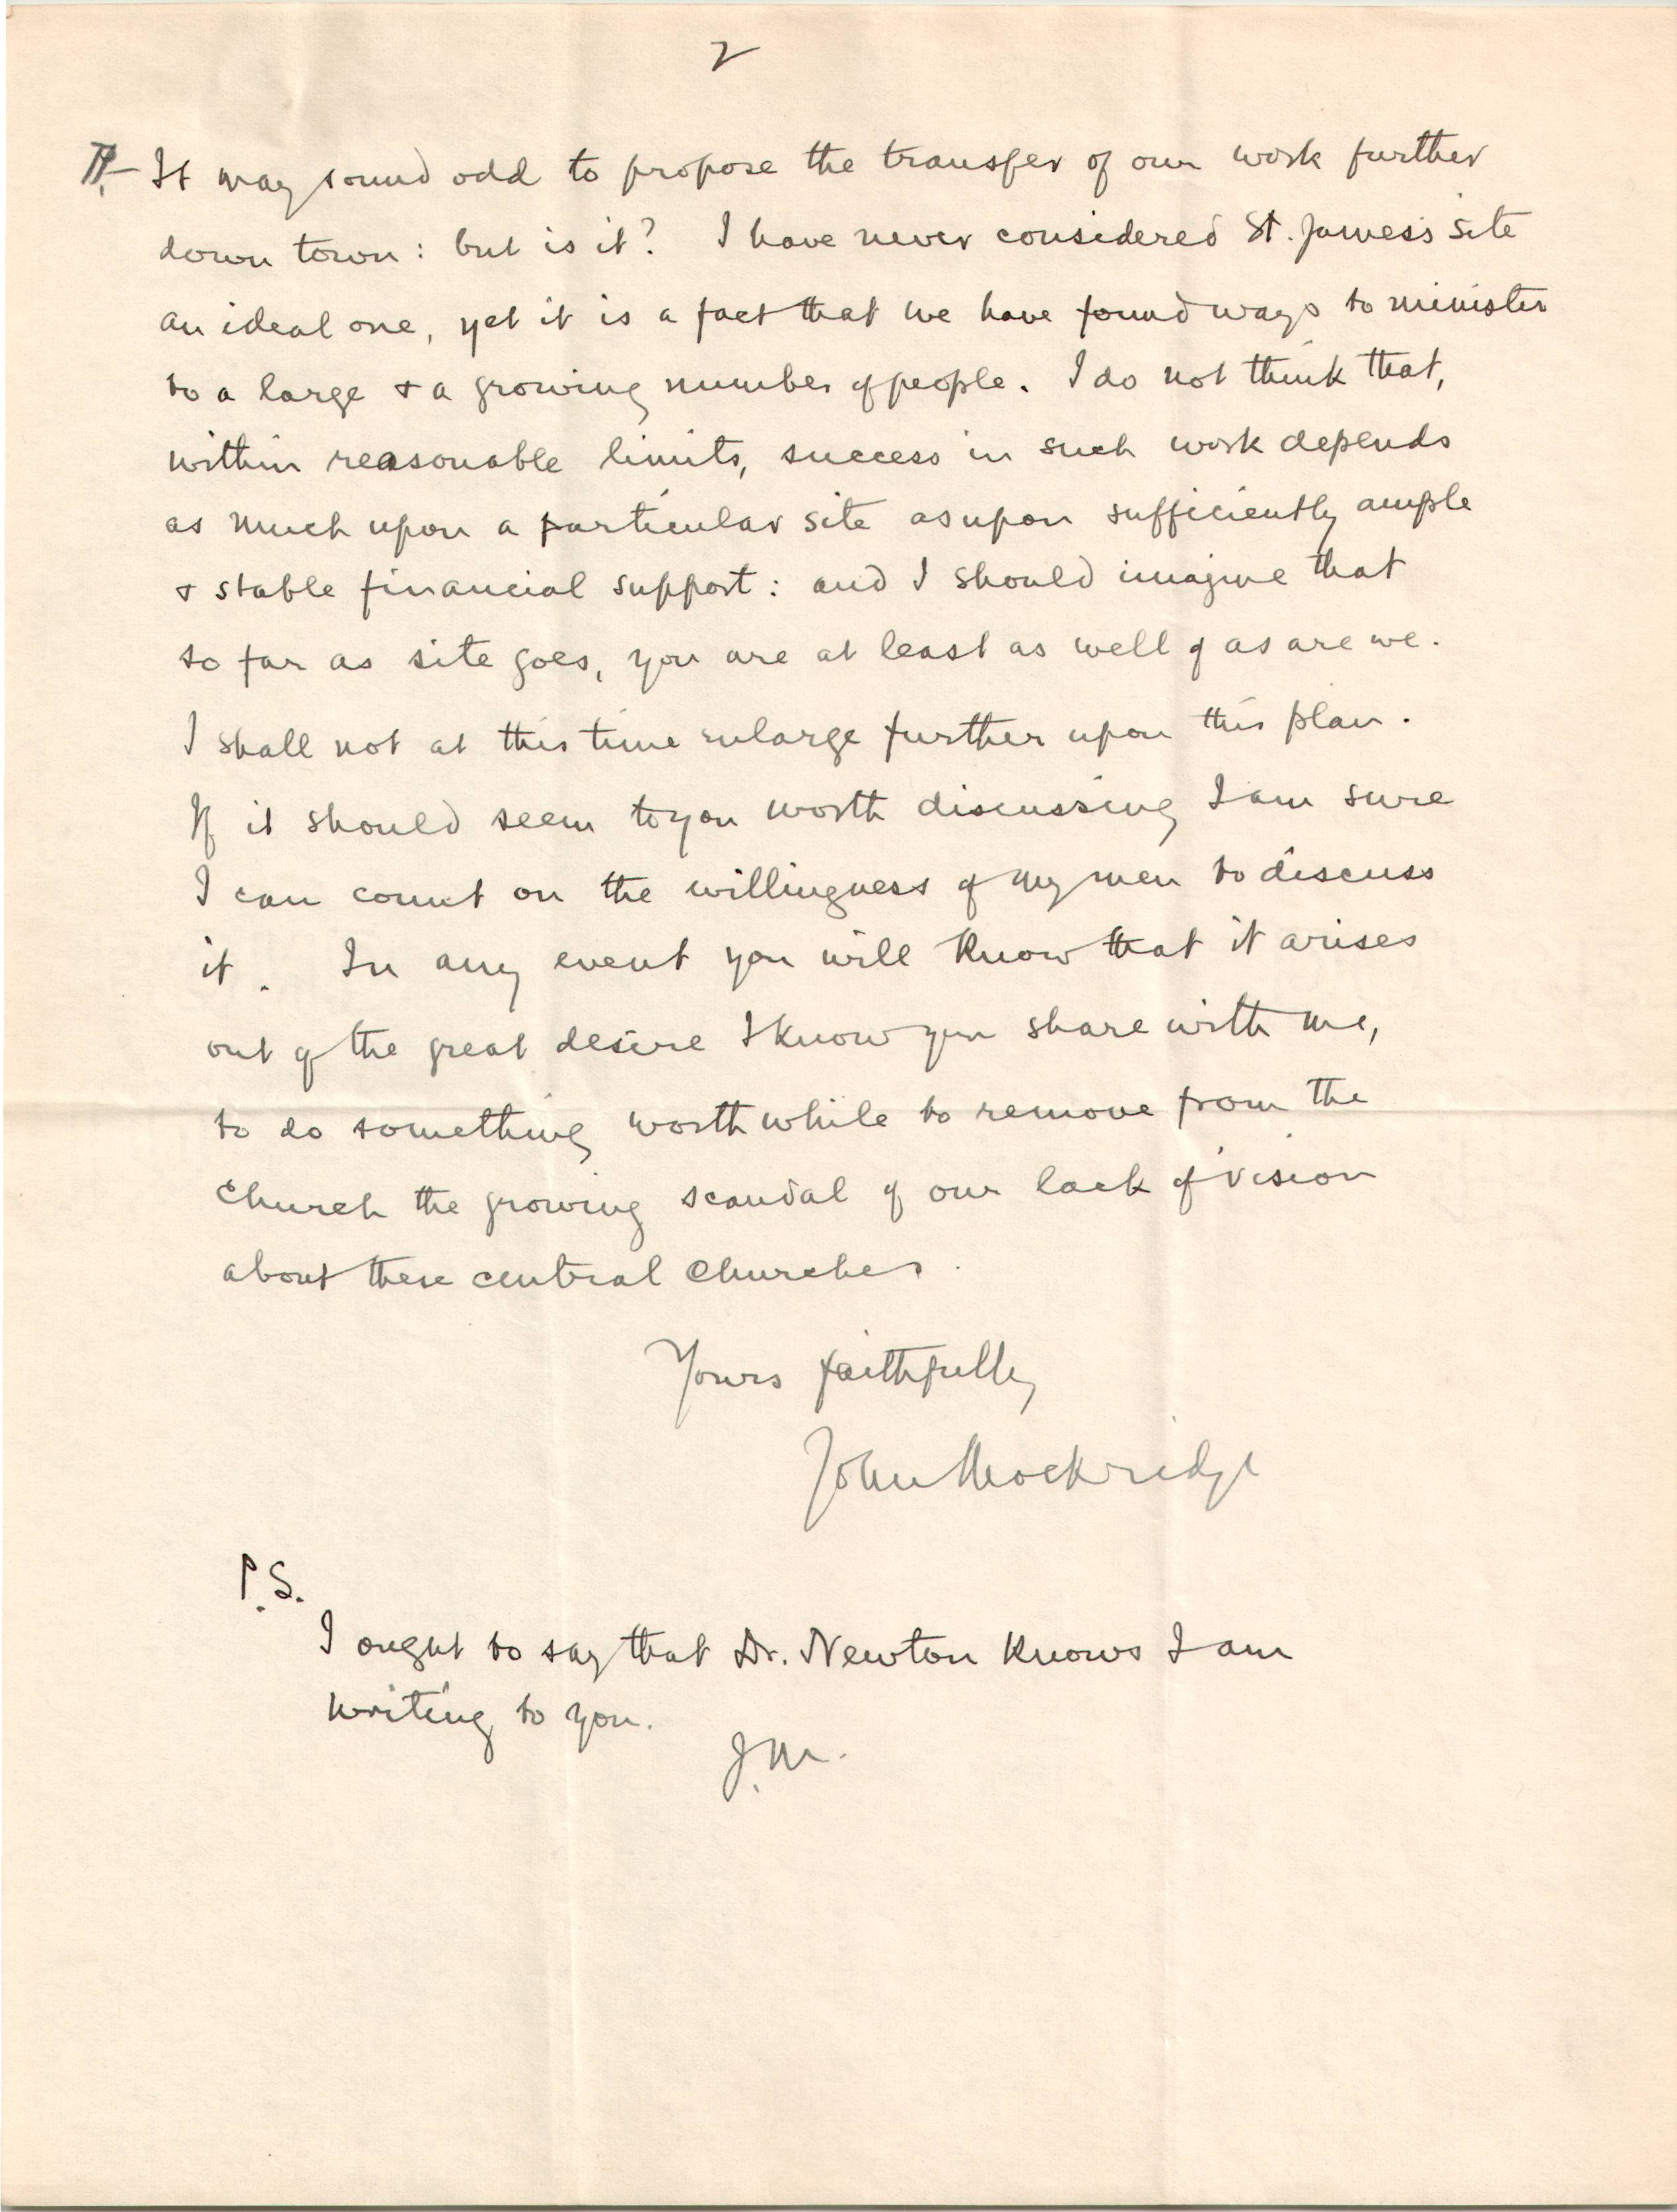 2
¶- It may sound odd to propose the transfer of our work further
down town: but is it? I have never considered St. James's site
an ideal one, yet it is a fact that we have found ways to minister
to a large & a growing number of people. I do not think that,
within reasonable limits, success in such work depends
as much upon a particular site as upon sufficiently ample
& stable financial support: and I should imagine that
so far as site goes, you are at least as well of as are we.
I shall not at this time enlarge further upon this plan.
If it should seem to you worth discussing I am sure
I can count on the willingness of my men to discuss
it. In any event you will know that it arises
out of the great desire I know you share with me,
to do something worth while to remove from the
Church the growing scandal of our lack of vision
about these central Churches.
Yours faithfully
John Mockridge
P.S.
I ought to say that Dr. Newton knows I am
writing to you.
J.M.